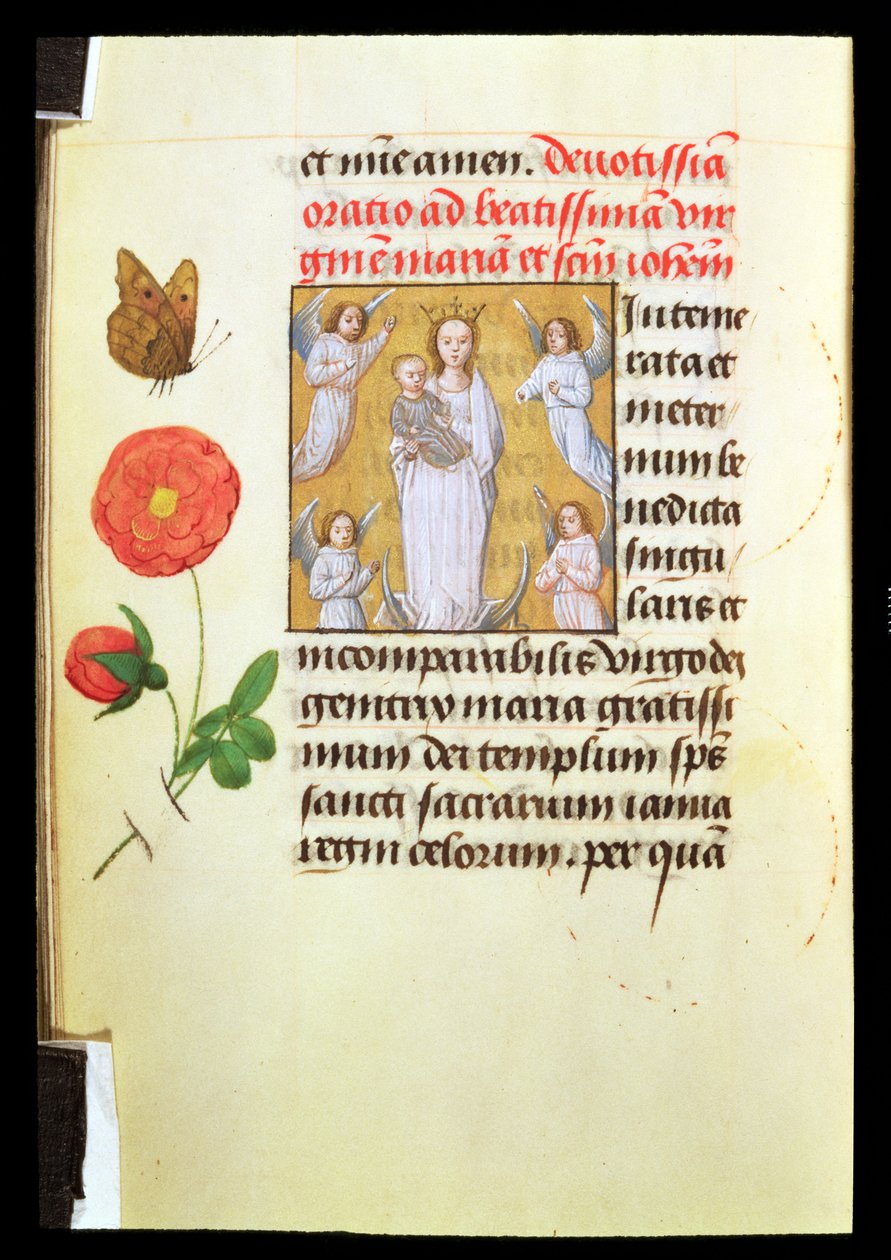 et nūc amen. Deuotissiā
oratio ad beatissimā vir
ginē mariā et scm̄ iohem̄
Inteme
rata et
in eter
num be
nedicta
singu
laris et
incomparabilis virgo dei
genitrix maria gratissi
mum dei templum sp̄s
sancti sacrarium ianua
regni celorum. per quā